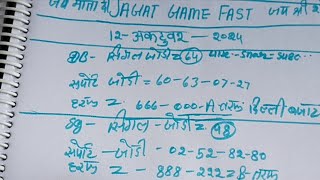 जय माता दी JAGAT GAME FAST जय श्री
12- अकटुवर - 2024
DB- सिंगल जोडी = 64
सपोर्ट जोडी = 60-63-07-27
हरूफ z. 666-000-A तरफ दिल्ली बजार
सिंगल - जोडी z 98
सपोर्ट - जोडी - 02-52-82-80
हरूफ z - 888-222 = B- तरफ